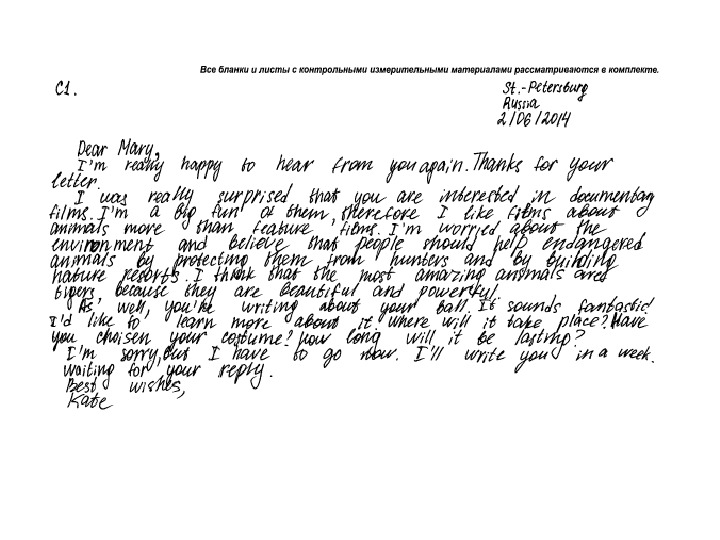 Все бланки и листы с контрольными измерительными материалами рассматриваются в комплекте.
C1.
St.-Petersburg
Russia
2/06/2014
Dear Mary,
I'm really happy to hear from you again. Thanks for your
letter.
I was really surprised that you are interested in documentary
films. I'm a big fun of them, therefore I like films about
animals more than feature films. I'm worried about the
environment and believe that people should help endangered
animals by protecting them from hunters and by building
nature resorts. I think that the most amazing animals are
tigers, because they are beautiful and powerful.
As well, you're writing about your ball. It sounds fantastic.
I'd like to learn more about it. where will it take place? Have
you choisen your costume? how long will it be lasting?
I'm sorry, but I have to go now. I'll write you in a week.
waiting for your reply.
Best wishes,
Kate